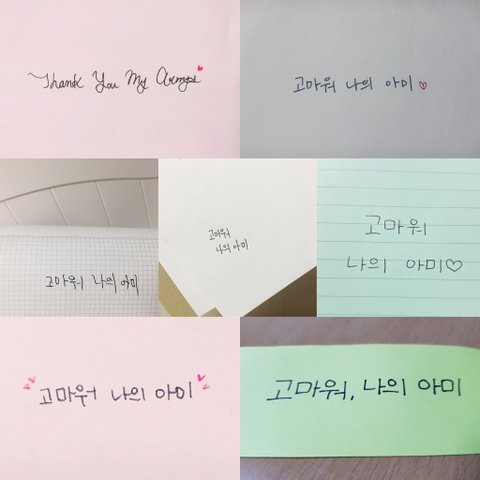 Thank You My Armys
고마워 나의 아미
고마워 나의 아미
고마워
나의 아미
고마워
나의 아미♡
고마워 나의 아미
고마워, 나의 아미